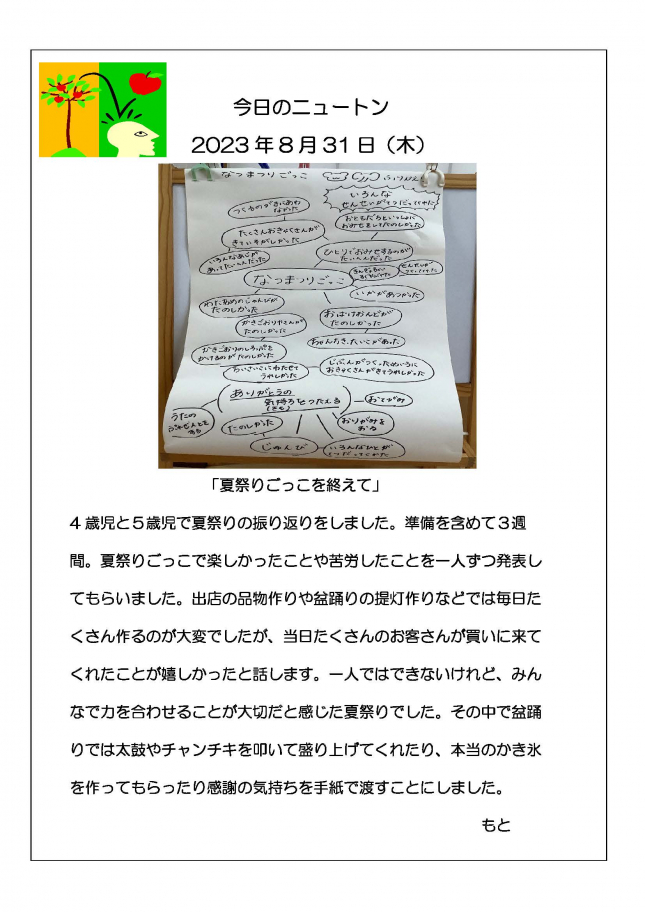 今日のニュートン
2023年8月31日（木）
なつまつりごっこ
いろんな
せんせいがてつだってくれた
たくさんおきゃくさんが
きていそがしかった
おともだちといっしょに
おみせをしてたのしかった
ひとりでおみせするのが
たいへんだった
なつまつりごっこ
いかがあつかった
わたあめのじゅんびが
たのしかった
おばけおんどが
たのしかった
かきごおりやさんが
たのしかった
ちゃんちき、たいこがあった
かきごおりのしろっぷを
かけるのがたのしかった
じぶんがつくっためいろに
おきゃくさんがきてうれしかった
ちいさいこにわたせて
うれしかった
ありがとうの
気持ちをつたえる
おてがみ
うたの
ぷれぜんとを
する
たのしかった
おりがみを
おる
じゅんび
いろんなひとが
てつだってくれた
「夏祭りごっこを終えて」
4歳児と5歳児で夏祭りの振り返りをしました。準備を含めて3週
間。夏祭りごっこで楽しかったことや苦労したことを一人ずつ発表し
てもらいました。出店の品物作りや盆踊りの提灯作りなどでは毎日た
くさん作るのが大変でしたが、当日たくさんのお客さんが買いに来て
くれたことが嬉しかったと話します。一人ではできないけれど、みん
なで力を合わせることが大切だと感じた夏祭りでした。その中で盆踊
りでは太鼓やチャンチキを叩いて盛り上げてくれたり、本当のかき氷
を作ってもらったり感謝の気持ちを手紙で渡すことにしました。
もと